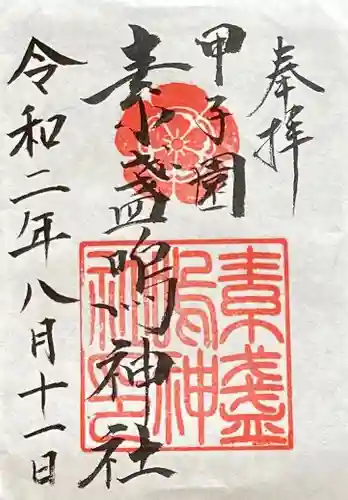 奉拝
甲子園
素盞嗚神社
令和二年八月十一日
素盞
嗚神
社